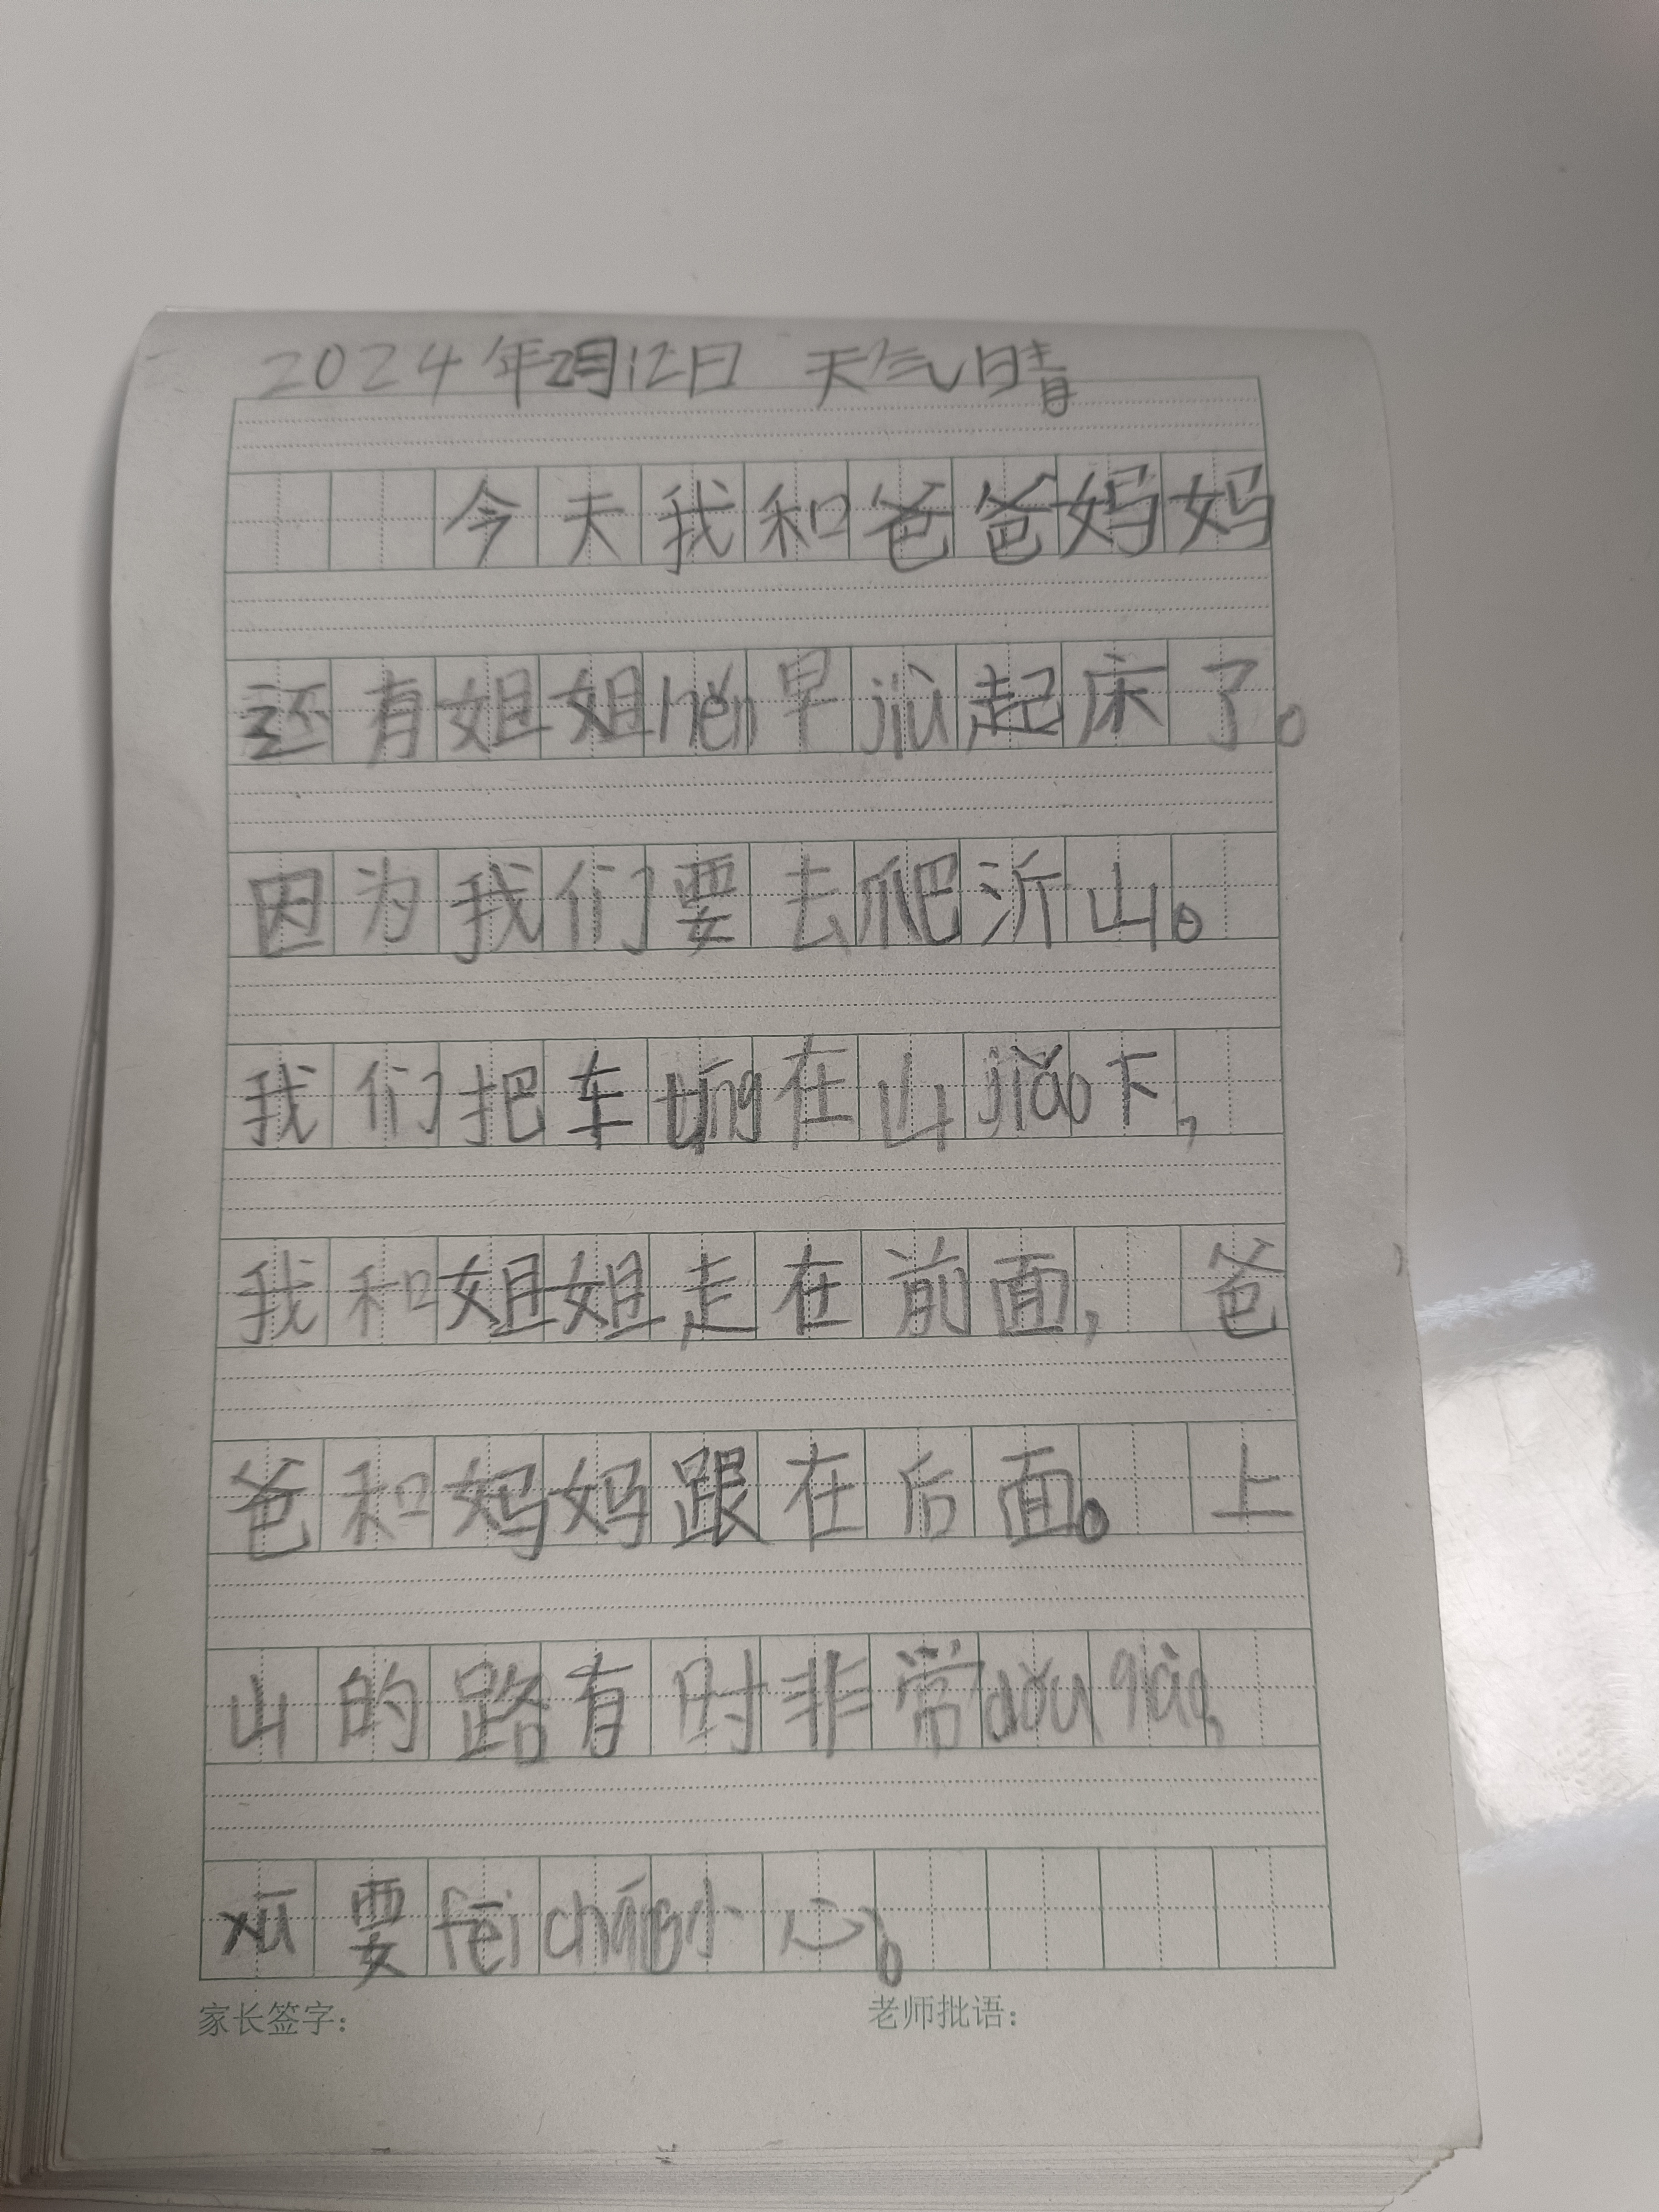 2024年2月12日 天气晴
今天我和爸爸妈妈
还有姐姐hěn早jiù起床了。
因为我们要去爬沂山。
我们把车tíng在山jiǎo下,
我和姐姐走在前面, 爸
爸和妈妈跟在后面。 上
山的路有时非常dǒu qiào,
xū要fēi cháng小心。
家长签字: 老师批语: